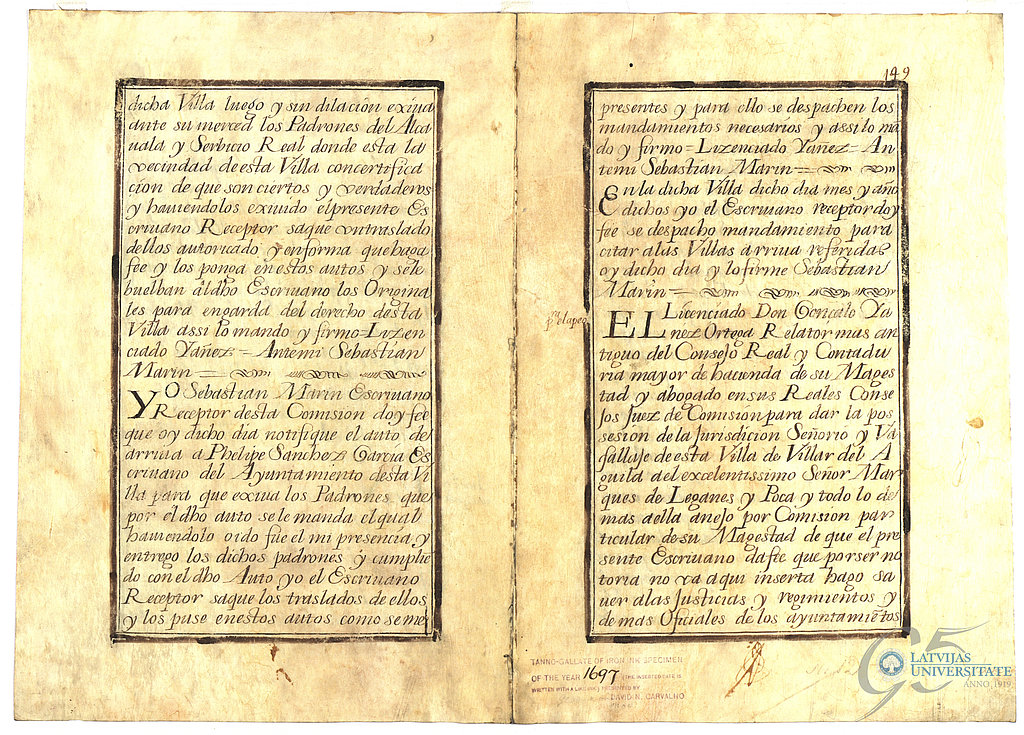 dicha Villa luego y sin dilacion exiua
ante su merced los Padrones del Alca
uala y Serbicio Real donde esta la
vecindad de esta Villa concertifica
cion de que son ciertos y verdaderos
y hauiendolos exiuido el presente Es
criuano Receptor saque vntraslado
dellos autoricado y enforma que haga
fee y los ponga enestos autos y sele
buelban al dho Escriuano los Origina
les para enguarda del derecho desta
Villa assi lo mando y firmo = Lizen
ciado Yañez = Antemi Sebastian
Marin
YO Sebastian Marin Escriuano
Receptor desta Comision doy fee
que oy dicho dia notifique el auto de
arriua a Phelipe Sanchez Garcia Es
criuano del Ayuntamiento desta Vi
lla para que exiua los Padrones que
por el dho auto se le manda el qual
hauiendolo oido fue el mi presencia y
entrego los dichos padrones y cumplie
do con el dho Auto yo el Escriuano
Receptor saque los traslados de ellos
y los puse enestos autos como seme
149
presentes y para ello se despachen los
mandamientos necesarios y assi lo ma
do y firmo = Lizenciado Yañez = An
temi Sebastian Marin
En la dicha Villa dicho dia mes y año
dichos yo el Escriuano receptor doy
fee se despacho mandamiento para
citar alas Villas arriua referidas
oy dicho dia y lo firme Sebastian
Marin
EL Licenciado Don Goncalo Ya
nez Ortega Relator mas an
tiguo del Consejo Real y Contadu
ria mayor de hacienda de su Mages
tad y abogado ensus Reales Conse
jos Juez de Comision para dar la pos
sesion de la Jurisdicion Señorio y Va
sallaje de esta Villa de Villar del A
guila al excelentissimo Señor Mar
ques de Leganes y Poca y todo lo de
mas aella anejo por Comision par
ticular de su Magestad de que el pre
sente Escriuano da fee que por ser no
toria no va aqui inserta hago sa
uer alas Justicias y regimientos y
demas Oficiales de los ayuntamientos
TANNO-GALLATE OF IRON INK SPECIMEN
OF THE YEAR 1697 (THE INSERTED DATE IS
WRITTEN WITH A LIKE INK) PRESENTED BY
DAVID N. CARVALHO
95
LATVIJAS
UNIVERSITATE
ANNO 1919